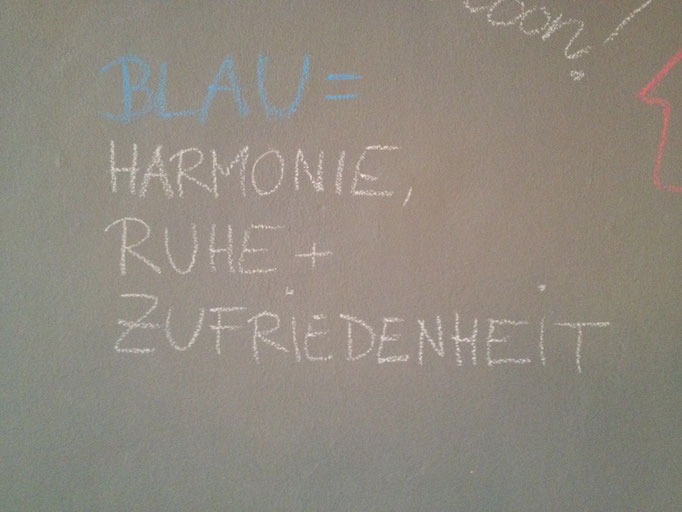 BLAU =
HARMONIE,
RUHE +
ZUFRiEDENHEiT